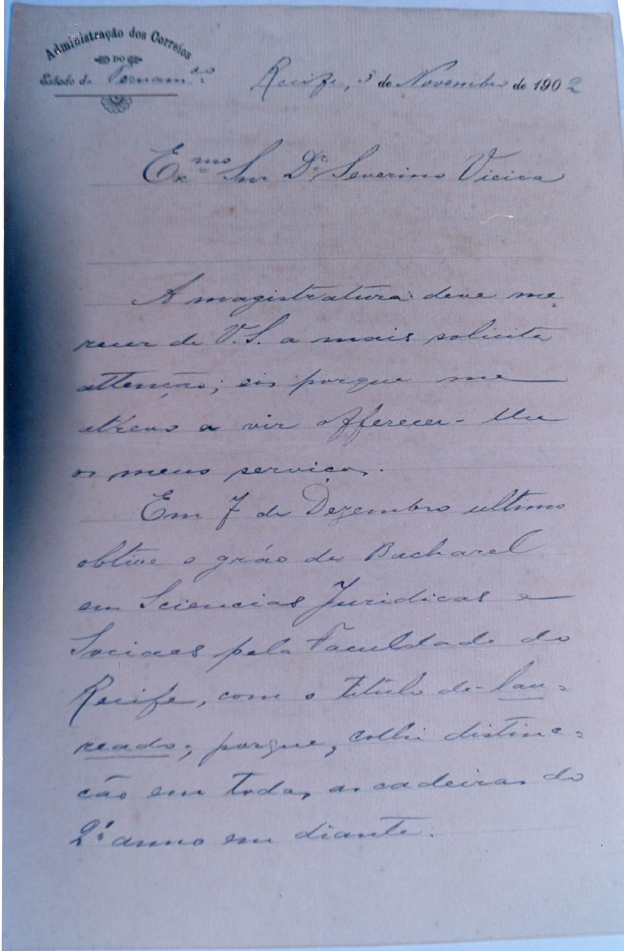 Administração dos Correios
DO
Estado de Pernam.co
Recife, 3 de Novembro de 1902
Ex.mo Snr Dr. Severino Vieira
A magistratura deve me-
recer de V.S. a mais solicita
attenção; eis porque me
atrevo a vir offerecer-lhe
os meus serviços.
Em 7 de Dezembro ultimo
obtive o gráo de Bacharel
em Sciencias Juridicas e
Sociaes pela Faculdade do
Recife, com o titulo de lau-
reado; porque, colhi distinc-
ção em todas as cadeiras do
2º anno em diante.